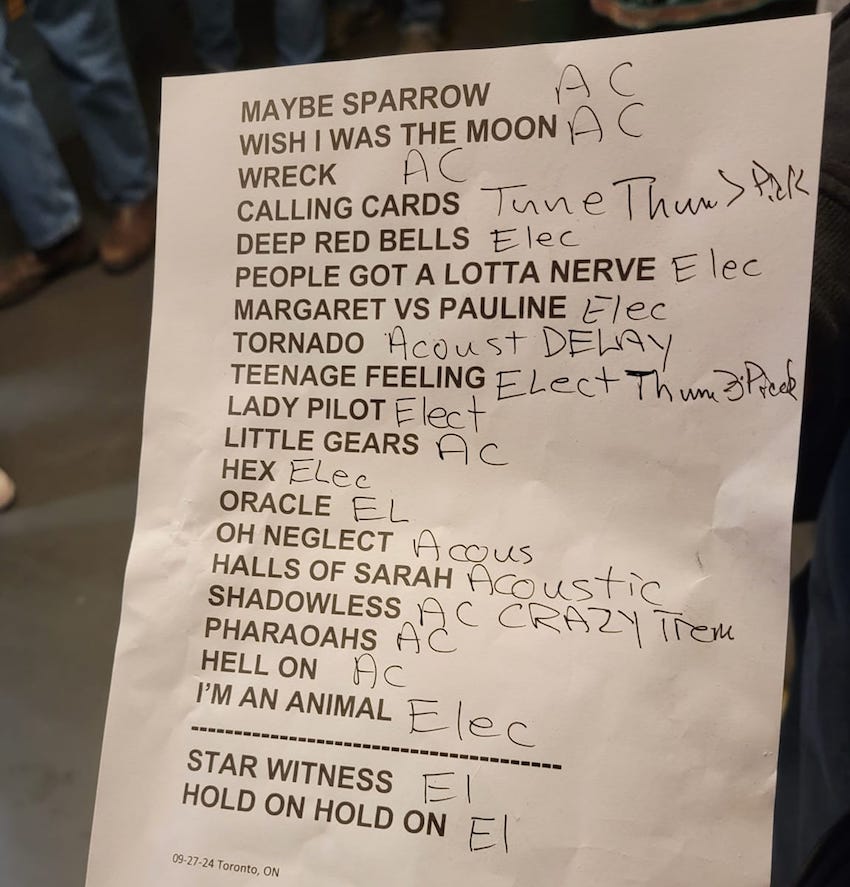 MAYBE SPARROW AC
WISH I WAS THE MOON AC
WRECK AC
CALLING CARDS Tune Thum > Pick
DEEP RED BELLS Elec
PEOPLE GOT A LOTTA NERVE Elec
MARGARET VS PAULINE Elec
TORNADO Acoust DELAY
TEENAGE FEELING ELect Thum
LADY PILOT Elect
LITTLE GEARS AC
HEX ELec
ORACLE EL
OH NEGLECT Acous
HALLS OF SARAH Acoustic
SHADOWLESS AC CRAZY Trem
PHARAOAHS AC
HELL ON AC
I'M AN ANIMAL Elec
STAR WITNESS El
HOLD ON HOLD ON El
09-27-24 Toronto, ON